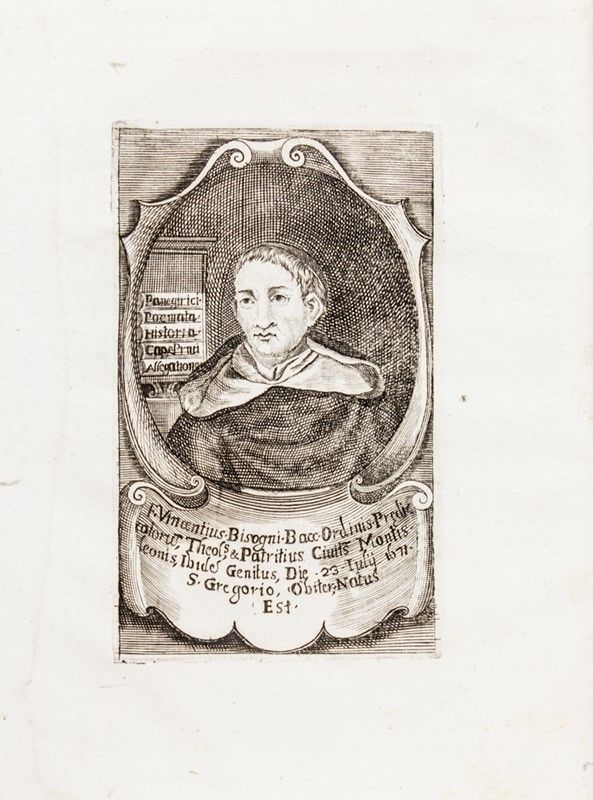 Panegirici.
Poemata.
Historia.
Allegationes
F. Vincentius. Bisogni. Bacc. Ordinis. Predi-
catoruʒ, Theolˢ. & Patritius Ciuitˢ Montis
Leonis, Ibideʒ Genitus, Die 23 July 1671.
S. Gregorio, Obiter, Natus
Est.